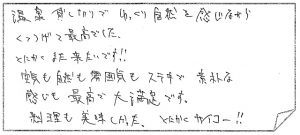 温泉貸し切りで ゆっくり自然を感じながら
くつろげて最高でした.
とにかく また 来たいです!!
景色も 自然も 雰囲気も ステキで 素朴な
感じも 最高で 大満足です.
料理も 美味しかった. とにかく サイコー!!